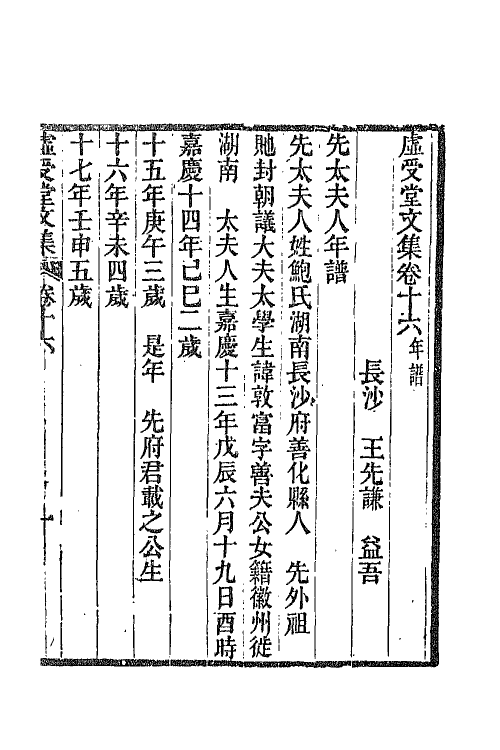 虛受堂文集卷十六年譜
長沙　王先謙　益吾
先太夫人年譜
先太夫人姓鮑氏湖南長沙府善化縣人　先外祖
貤封朝議大夫太學生諱敦富字善夫公女籍徽州徙
湖南　太夫人生嘉慶十三年戊辰六月十九日酉時
嘉慶十四年己巳二歲
十五年庚午三歲　是年　先府君載之公生
十六年辛未四歲
十七年壬申五歲
虛受堂文集　卷十六　一